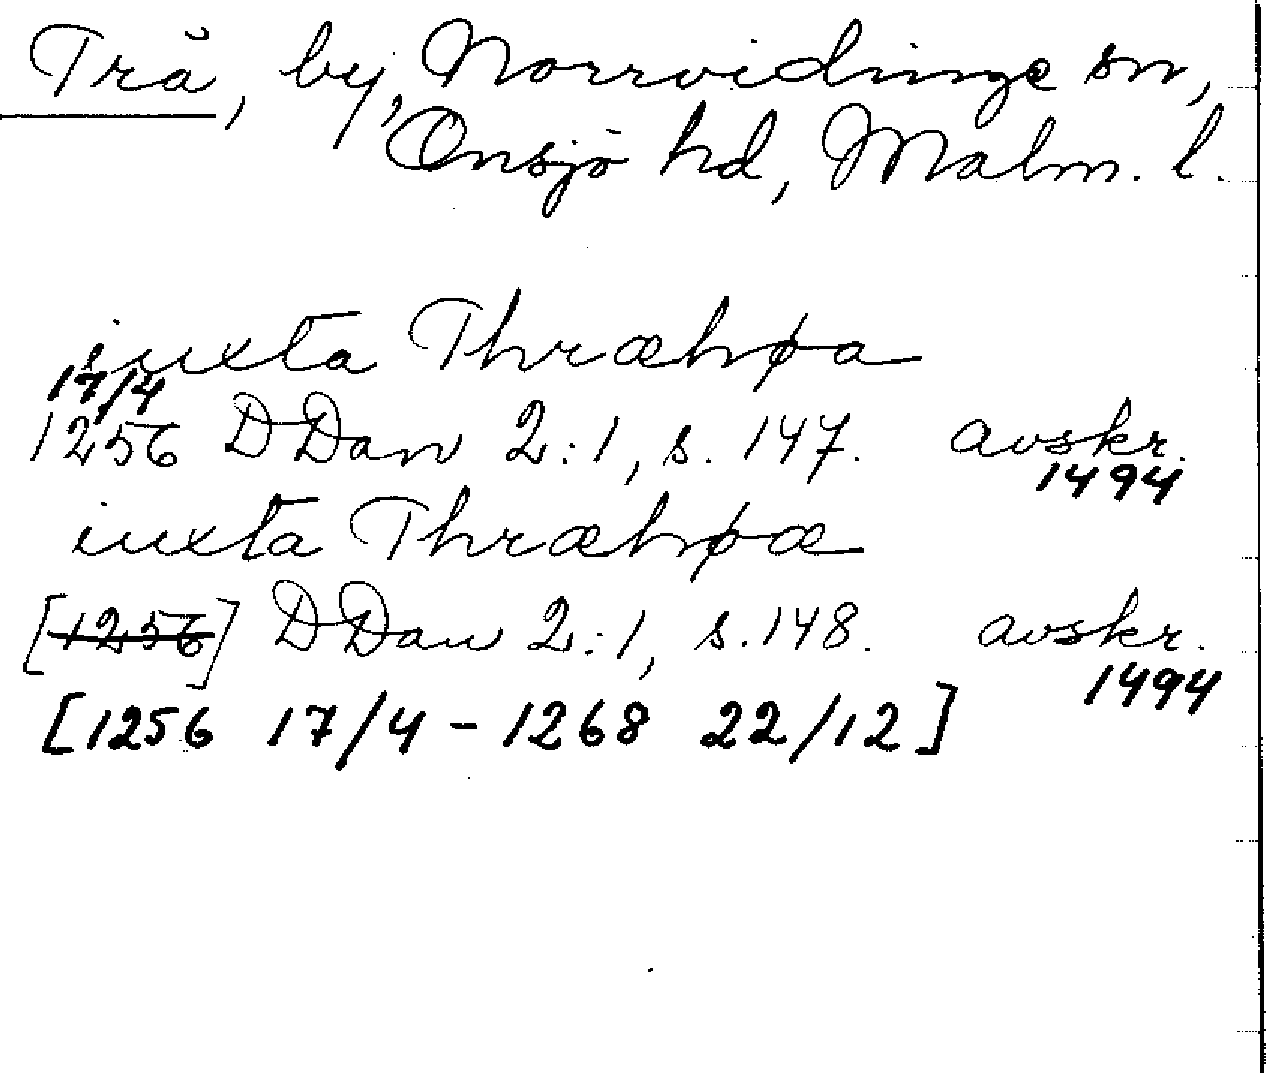 Trä, by, Norrvidinge sn,
Onsjö hd, Malm. l.
iuxta Thræhøa
17/4
1256 DDan 2:1, s. 147. avskr.
1494
iuxta Thræhøæ
[1256] DDan 2:1, s. 148. avskr.
1494
[1256 17/4 - 1268 22/12]